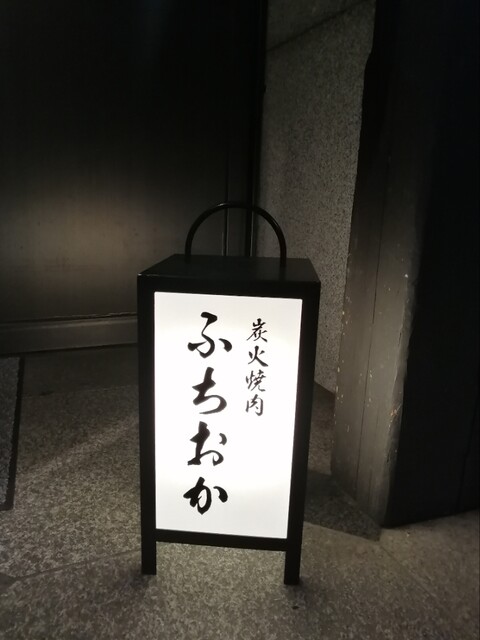 炭火焼肉
ふちおか